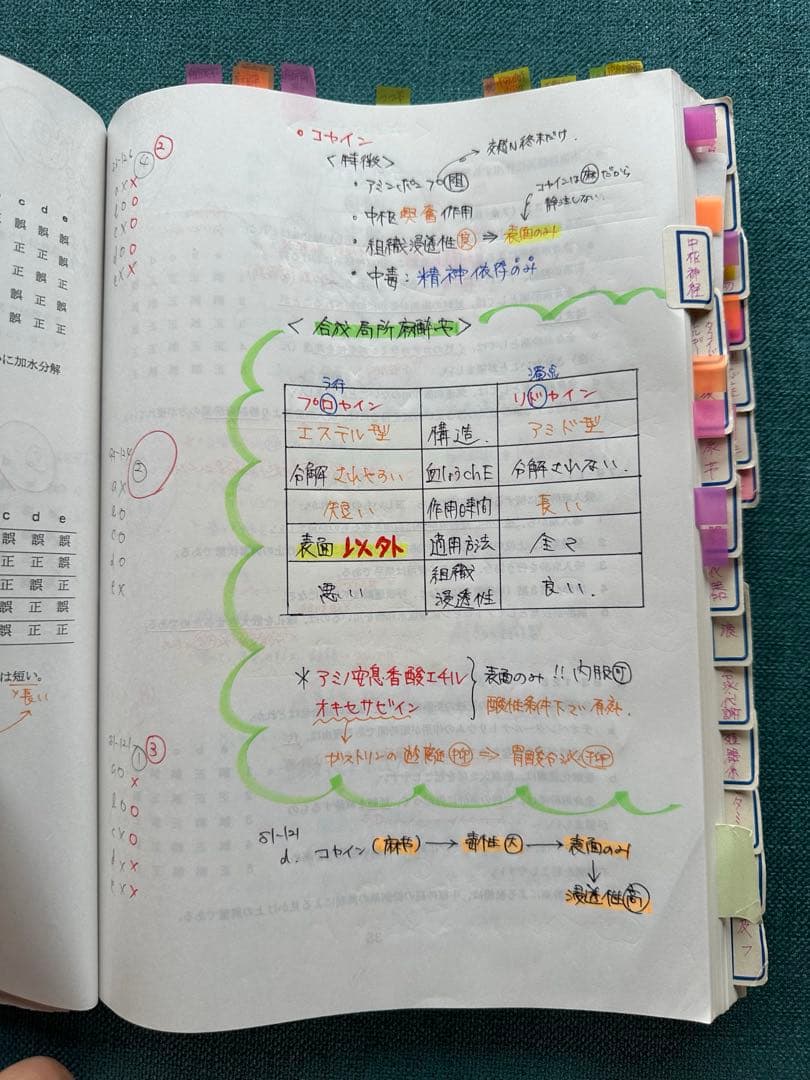 c d e
誤 誤 誤
正 正 誤
正 正 正
誤 誤 正
誤 正 正
に加水分解
c d e
誤 誤 誤
正 正 正
誤 誤 誤
誤 正 正
誤 正 正
は短い。
長い
81-126
④ ②
a x x
b o o
c x o
d o o
e x x
②
a x
b o
c o
d o
e x
81-121
① ③
a o x
b o o
c x o
d x x
e x x
• コカイン
<特徴>
• アミンポンプ 阻 → 交感N終末だけ.
• 中枢興奮作用
コカインは麻だから
静注しない.
• 組織浸透性 良 ⇒ 表面のみ
• 中毒: 精神依存のみ
<合成局所麻酔薬>
プロカイン リドカイン
エステル型 構造. アミド型
分解されやすい 血しょうchE 分解されない.
短い 作用時間 長い
表面以外 適用方法 全て
悪い 組織浸透性 良い.
* アミノ安息香酸エチル
オキセサゼイン
表面のみ!! 内服 可
酸性条件下で有効.
ガストリンの遊離 抑 ⇒ 胃酸分泌 抑
81-121
d. コカイン (麻薬) → 毒性 大 → 表面のみ
↓
浸透性 高
中枢神経